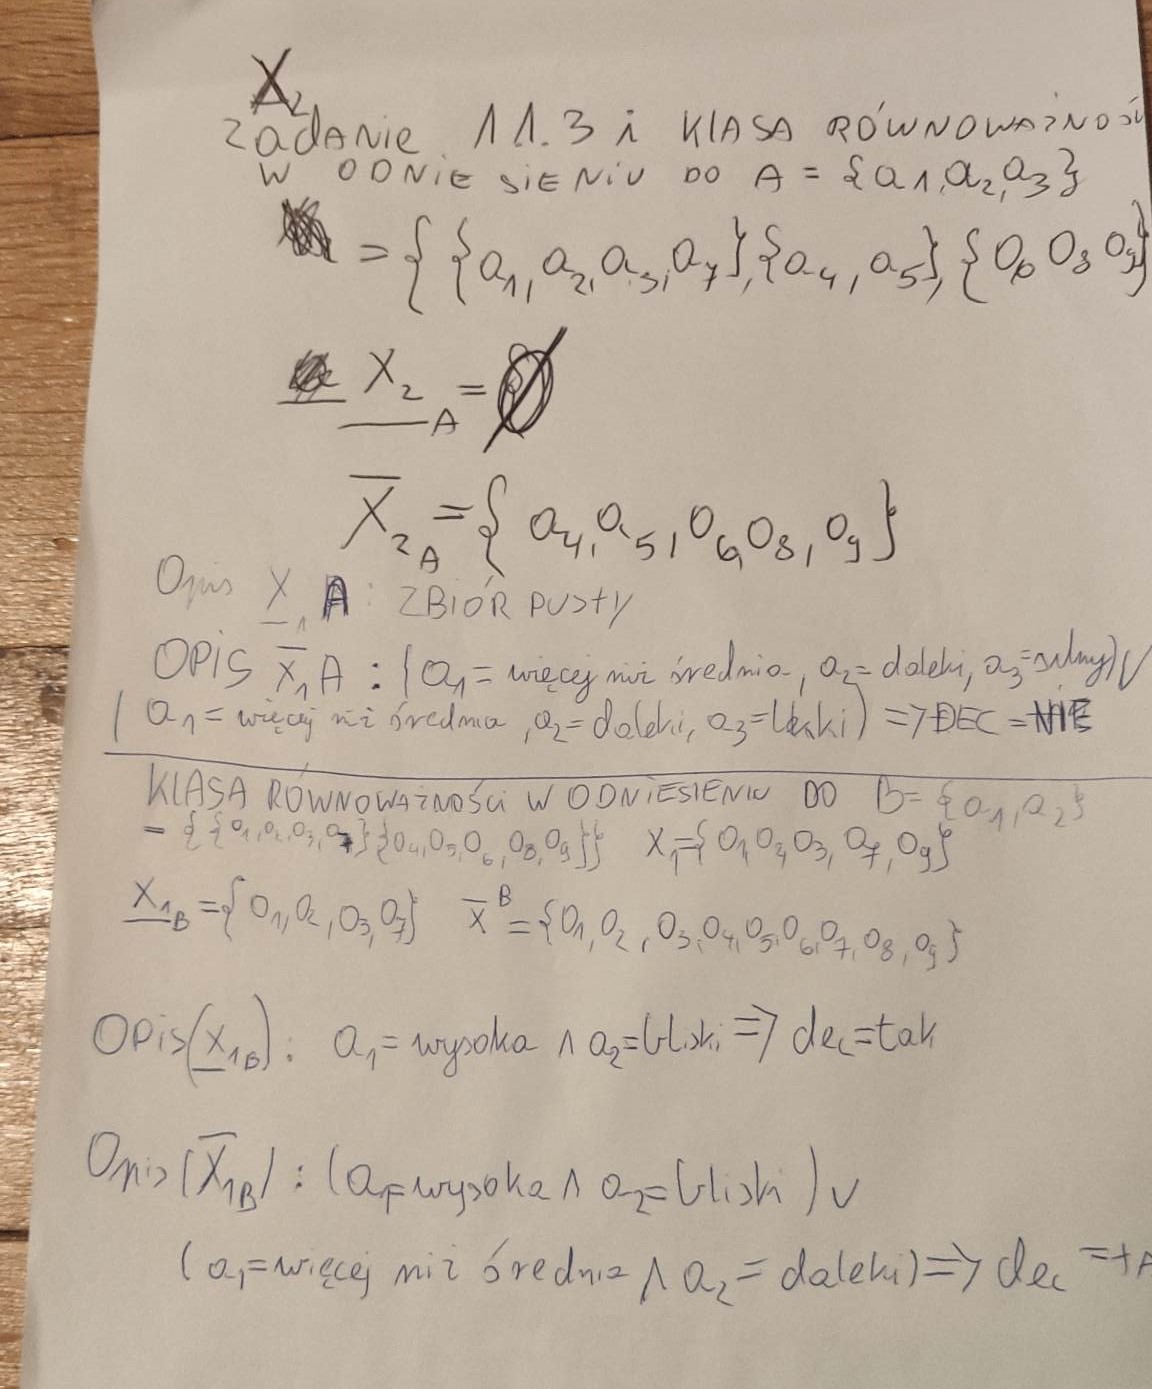 X₂
zadanie 11.3 i KLASA RÓWNOWAŻNOŚCI
W ODNIESIENIU DO A = {a1, a2, a3}
= { {a1, a2, a3, a7}, {a4, a5}, {O6 O8 O9}
X₂A = ∅
X̅₂A = { a4, a5, O6, O8, O9 }
Opis X̲₁ A : ZBIÓR PUSTY
OPIS X̅₁A : (a1 = więcej niż średnia, a2 = daleki, a3 = silny) ∨
( a1 = więcej niż średnia, a2 = daleki, a3 = lekki) => DEC = NIE
KLASA RÓWNOWAŻNOŚCI W ODNIESIENIU DO B = {a1, a2}
= { {O1, O2, O3, O7} {O4, O5, O6, O8, O9}} X1={O1, O2, O3, O7, O9}
X̲1B = {O1, O2, O3, O7} X̅ᴮ = {O1, O2, O3, O4, O5, O6, O7, O8, O9}
OPIS(X̲1B) : a1 = wysoka ∧ a2 = bliski => dec = tak
Opis (X̅1B) : (a1 = wysoka ∧ a2 = bliski ) ∨
(a1 = więcej niż średnia ∧ a2 = daleki) => dec = tA